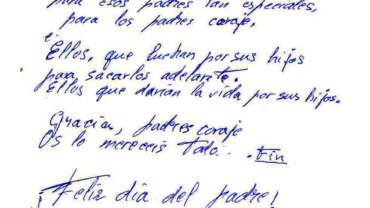 para esos padres tan especiales,
para los padres coraje,
è
Ellos, que luchan por sus hijos
para sacarlos adelante.
Ellos que darían la vida por sus hijos.
Gracias, padres coraje
Os lo mereceis Todo... Fin
¡Feliz día del padre!